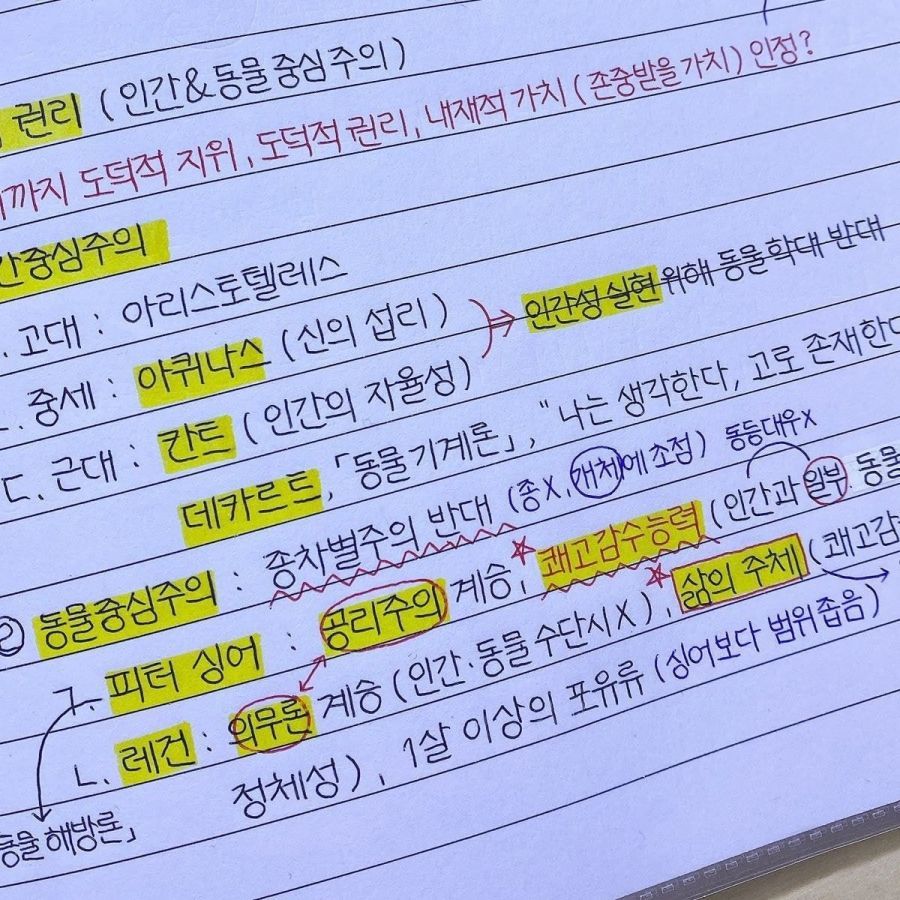 권리 (인간&동물중심주의)
까지 도덕적 지위, 도덕적 권리, 내재적 가치 (존중받을 가치) 인정?
간중심주의
ㄱ. 고대 : 아리스토텔레스
ㄴ. 중세 : 아퀴나스 (신의 섭리) ⇒ 인간성 실현 위해 동물학대 반대
ㄷ. 근대 : 칸트 (인간의 자율성)
데카르트, 「동물기계론」, "나는 생각한다, 고로 존재한다
② 동물중심주의 : 종차별주의 반대 (종X, 개체에 초점) 동등대우X
ㄱ. 피터 싱어 : 공리주의 계승, 쾌고감수능력 (인간과 일부 동물
ㄴ. 레건 : 의무론 계승 (인간·동물 수단시X), 삶의 주체 (쾌고감
정체성), 1살 이상의 포유류 (싱어보다 범위좁음)
동물해방론」